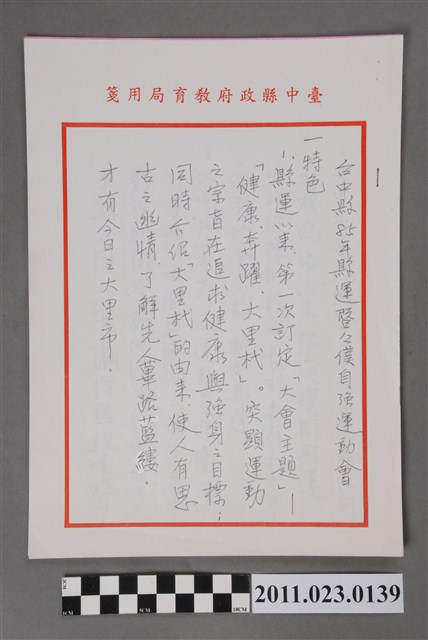 臺中縣政府教育局用箋
台中縣85年縣運暨公僕自強運動會
一特色
1.縣運以來,第一次訂定「大會主題」—
「健康、奔躍、大里杙」。突顯運動
之宗旨在追求健康與強身之目標;
同時介紹「大里杙」的由來,使人有思
古之幽情,了解先人蓽路藍縷,
才有今日之大里市。
2011.023.0139
1CM
5CM
10CM